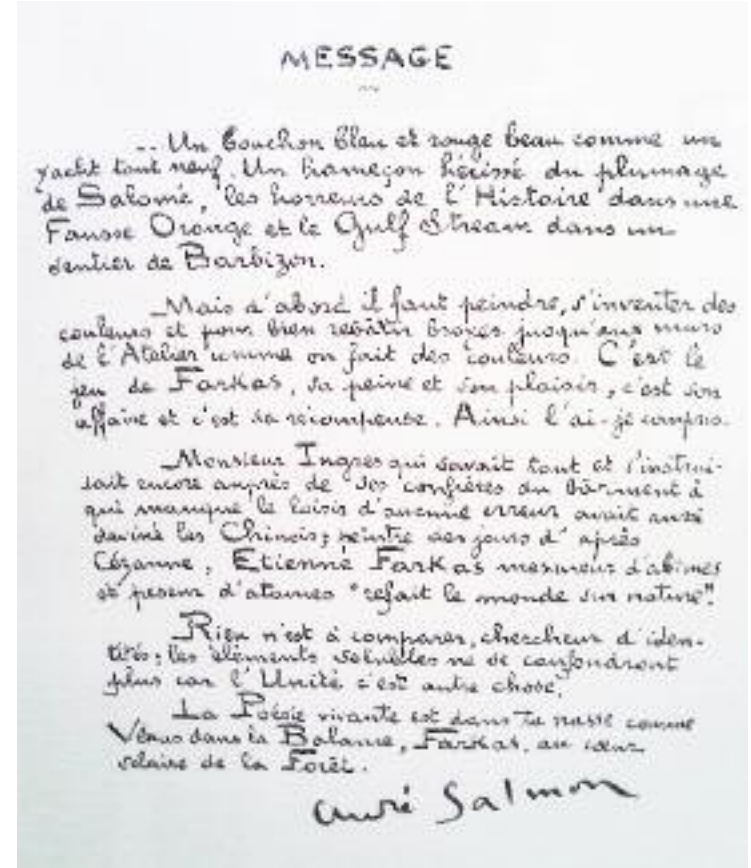 MESSAGE
-- Un bouchon bleu et rouge beau comme un
yacht tout neuf. Un hameçon hérissé du plumage
de Salomé, les horreurs de l'Histoire dans une
Fausse Oronge et le Gulf Stream dans un
sentier de Barbizon.
_Mais d'abord il faut peindre, s'inventer des
couleurs et pour bien rebâtir broyer jusqu'aux murs
de l'Atelier comme on fait des couleurs. C'est le
jeu de Farkas, sa peine et son plaisir, c'est son
affaire et c'est sa récompense. Ainsi l'ai-je compris.
_Monsieur Ingres qui savait tout et s'instrui-
sait encore auprès de ses confrères du bâtiment à
qui manque le loisir d'aucune erreur avait aussi
deviné les Chinois; peintre des jours d'après
Cézanne, Etienne Farkas mesureur d'abîmes
et peseur d'atomes "refait le monde sur nature".
_Rien n'est à comparer, chercheur d'iden-
tités; les éléments solubles ne se confondront
plus car l'Unité c'est autre chose.
La Poésie vivante est dans ta nasse comme
Vénus dans la Balance, Farkas, au cœur
solaire de la Forêt.
André Salmon